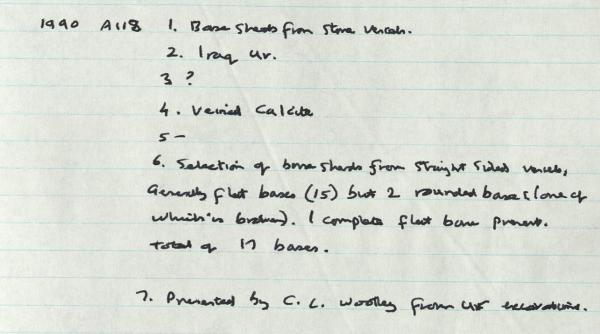 1990 A118 1. Base sherds from stone vessels.
2. Iraq Ur.
3 ?
4. Veined Calcite
5 -
6. Selection of base sherds from straight sided vessels,
Generally flat bases (15) but 2 rounded bases (one of
which is broken). 1 complete flat base present.
total of 17 bases.
7. Presented by C. L. Woolley from Ur excavations.